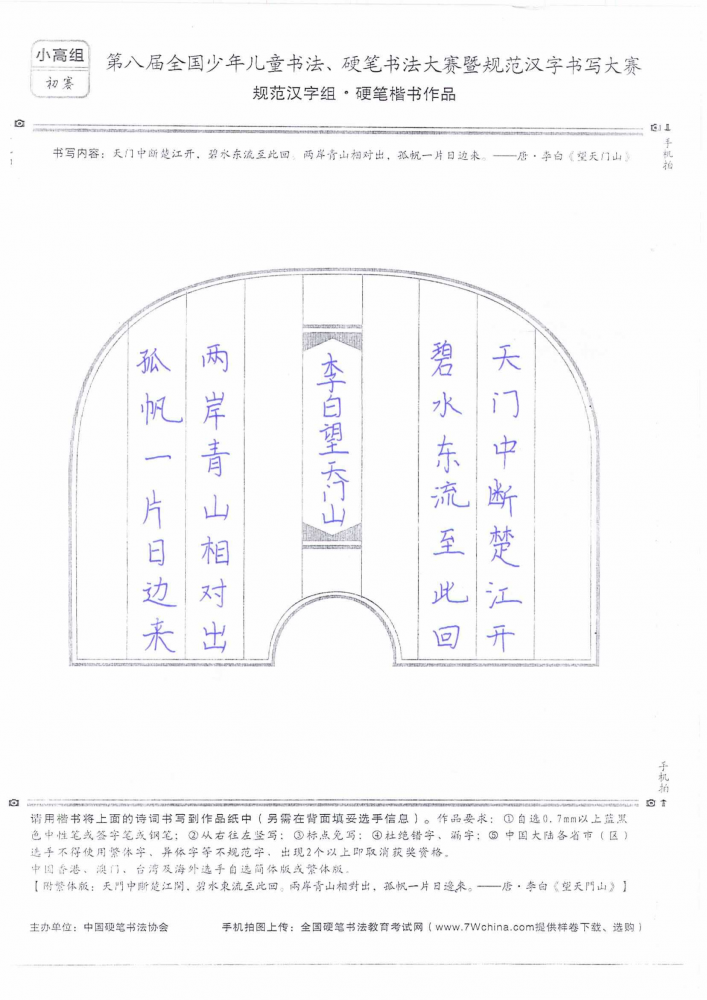 小高组
初赛
第八届全国少年儿童书法、硬笔书法大赛暨规范汉字书写大赛
规范汉字组·硬笔楷书作品
手机拍
书写内容：天门中断楚江开，碧水东流至此回。两岸青山相对出，孤帆一片日边来。——唐·李白《望天门山》
天门中断楚江开
碧水东流至此回
李白望天门山
两岸青山相对出
孤帆一片日边来
手机拍
请用楷书将上面的诗词书写到作品纸中（另需在背面填妥选手信息）。作品要求：①自选0.7mm以上蓝黑
色中性笔或签字笔或钢笔；②从右往左竖写；③标点免写；④杜绝错字、漏字；⑤中国大陆各省市（区）
选手不得使用繁体字、异体字等不规范字，出现2个以上即取消获奖资格。
中国香港、澳门、台湾及海外选手自选简体版或繁体版。
【附繁体版：天門中斷楚江開，碧水東流至此回。兩岸青山相對出，孤帆一片日邊來。——唐·李白《望天門山》】
主办单位：中国硬笔书法协会
手机拍图上传：全国硬笔书法教育考试网（www.7Wchina.com提供样卷下载、选购）